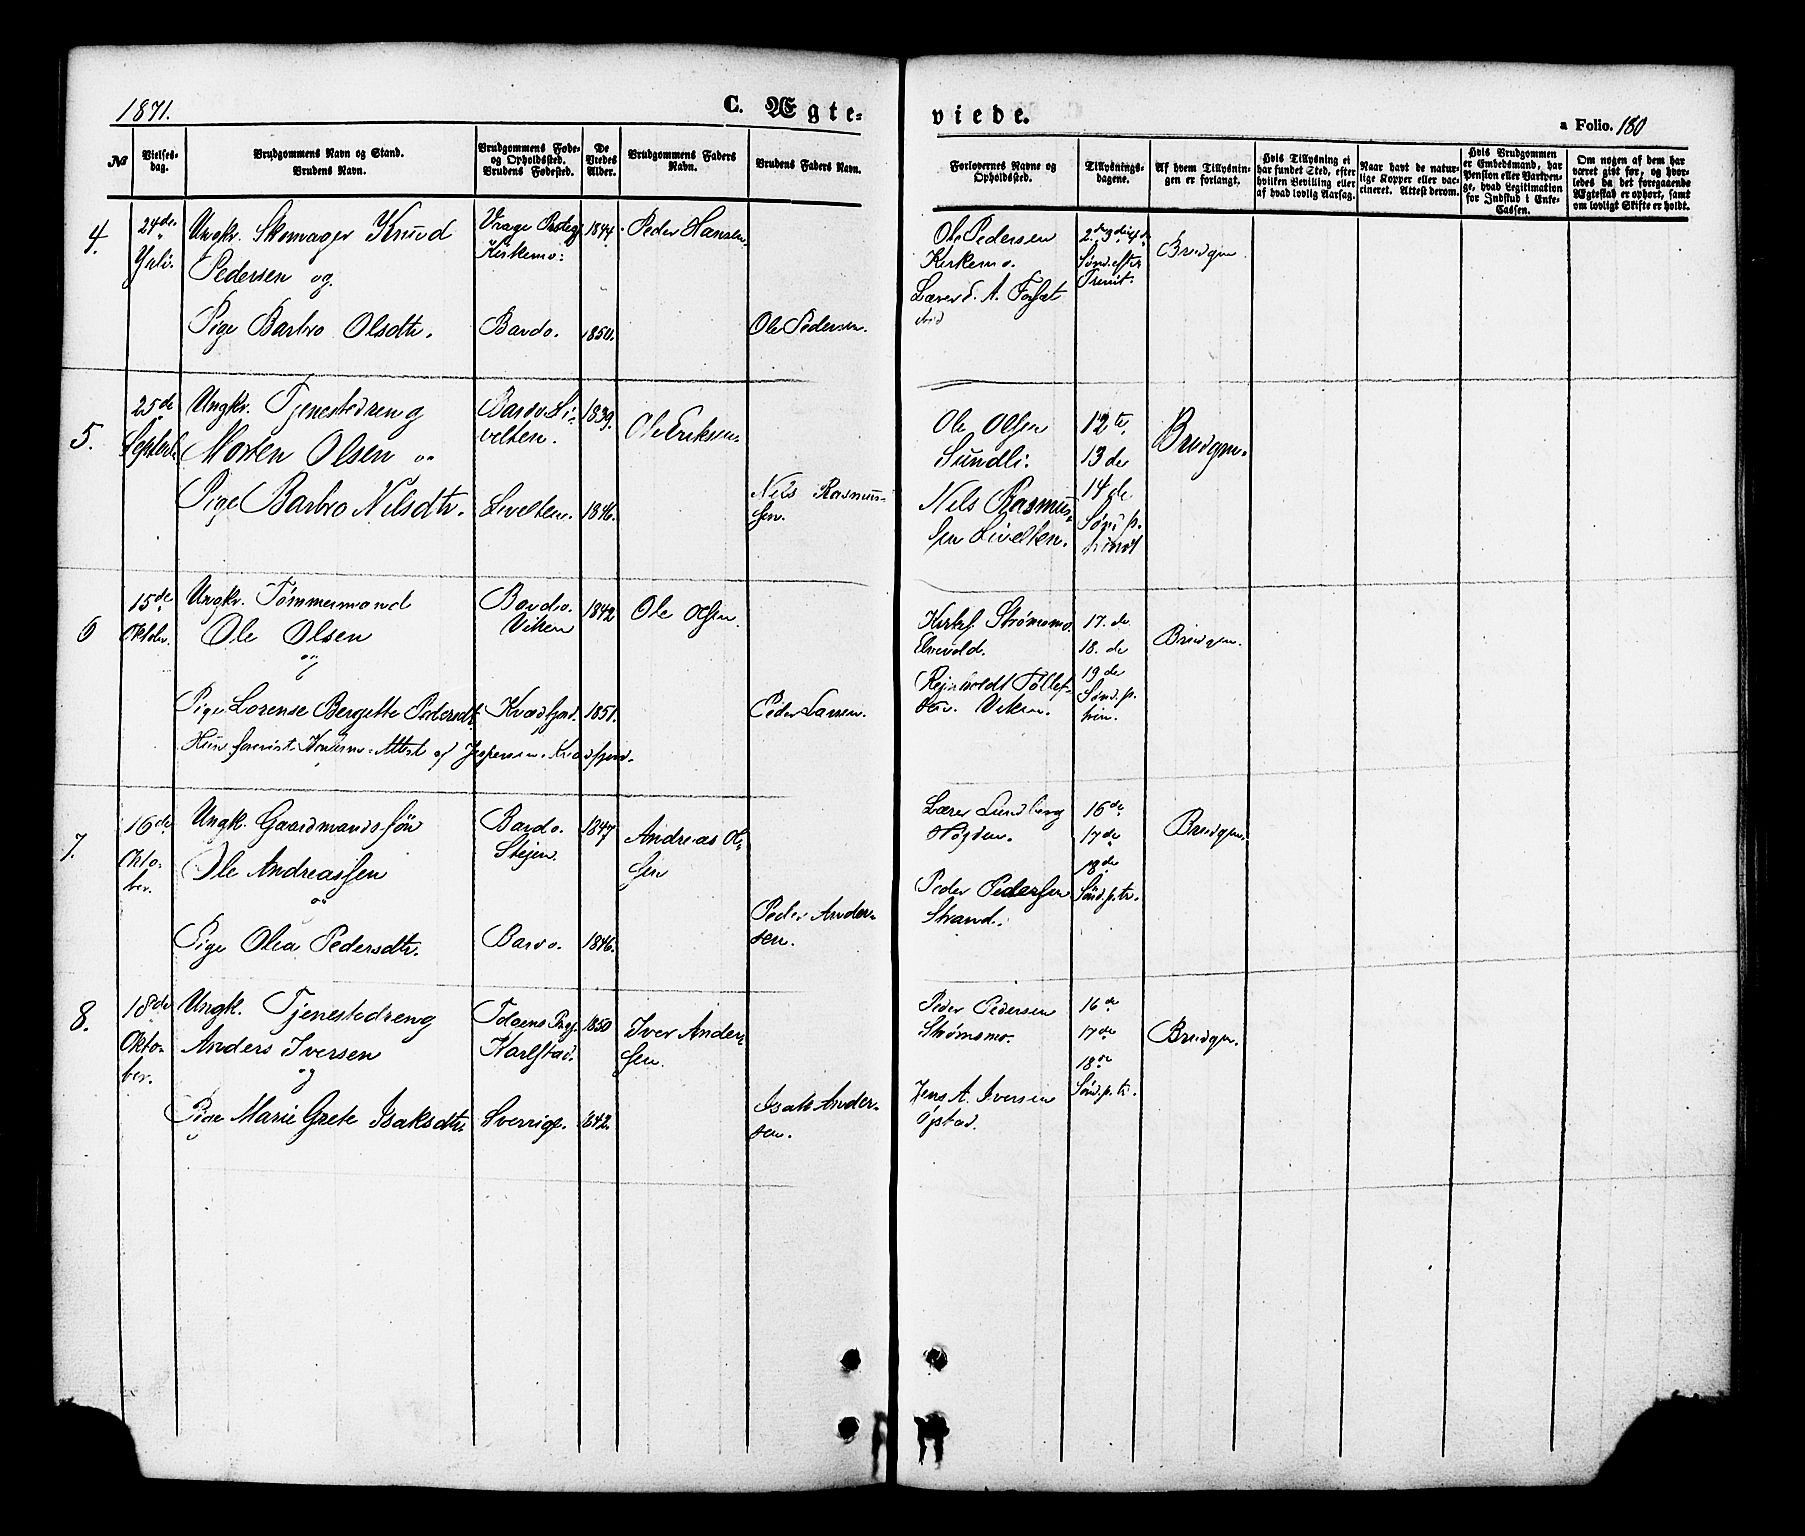 1871.
C. Ægte-
viede.
a Folio. 180
No
Vielses-
dag.
Brudgommens Navn og Stand.
Brudens Navn.
Brudgommens Føde-
og Opholdssted.
Brudens Fødested.
De
Viedes
Alder.
Brudgommens Faders
Navn.
Brudens Faders Navn.
Forlovernes Navne og
Opholdssted.
Tillysnings-
dagene.
Af hvem Tillysnin-
gen er forlangt.
Hvis Tillysning ei
har fundet Sted, efter
hvilken Bevilling eller
af hvad lovlig Aarsag.
Naar havt de natur-
lige Kopper eller vac-
cineret. Attest derom.
Hvis Brudgommen
er Embedsmand, har
Pension eller Vartpen-
ge, hvad Legitimation
for Indskud i Enke-
Cassen.
Om nogen af dem har
været gift før, og hvor-
ledes da det foregaaende
Ægteskab er ophørt, samt
om lovligt Skifte er holdt.
4.
24de
Juli.
Ungkr. Skomager Knud
Pedersen og
Pige Barbro Olsdtr.
Kirkemo:
Bardo.
1844.
1850.
Peder Hansen.
Ole Pedersen.
Ole Pedersen
Kirkemo.
Lærer
2de 3die 4de
Sønd. efter
Trinit.
Brudgm
5.
25de
Septemb.
Ungkr. Tjenestedreng
Morten Olsen og
Pige Barbro Nilsdtr.
Bardo Li-
velten.
Livelten.
1839.
1846.
Ole Eriksen.
Nils Rasmus-
sen.
Ole Olsen
Sundli.
Nels Rasmus-
sen Livelten.
12te
13de
14de
Sønd. p.
Brudgm.
6
15de
Oktobr.
Ungkr. Tømmermand
Ole Olsen
og
Pige Lorense Bergitte Pedersdt.
Bardo.
Viken
Kvædfjord.
1842
1851.
Ole Olsen.
Peder Larsen.
Kirkes. Strømsmo.
Elvevold.
Rejnholdt Tollef-
sen. Viken.
17.de
18.de
19de
Sønd. p.
trin.
Brudgm.
7.
16de
Okto-
ber.
Ungk. Gaardmandssøn
Ole Andreassen
og
Pige Olea Pedersdtr.
Bardo.
Stejen.
Bardo.
1847
1846.
Andreas Ol-
sen
Peder Ander-
sen.
Lærer Lundberg
Høgden.
Peder Pedersen
Strand.
16de
17de
18de
Sønd. p. tr.
Brudgm.
8.
18de
Okto-
ber.
Ungk. Tjenestedreng
Anders Iversen
og
Pige Marie Grete Isaksdtr.
Karlstad.
Sverrige.
1850
1842.
Iver Ander-
sen.
Isak Ander-
sen.
Peder Pedersen
Strømsmo.
Jens A. Iversen
16de
17de
18de
Sønd. p. tr.
Brudgm.